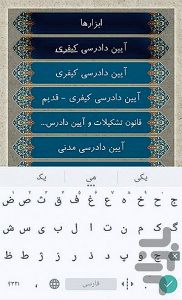 ابزارها
آیین دادرسی کیفری
آیین دادرسی کیفری
آیین دادرسی کیفری - قدیم
قانون تشکیلات و آیین دادرس...
آیین دادرسی مدنی
یکی می یک
ض ص ث ق ف غ ع ه خ ح ج
ش س ی ب ل ا ت ن م ک گ
ظ ط ژ ز ر ذ د پ و چ
؟۱۲۳ ، فارسی .